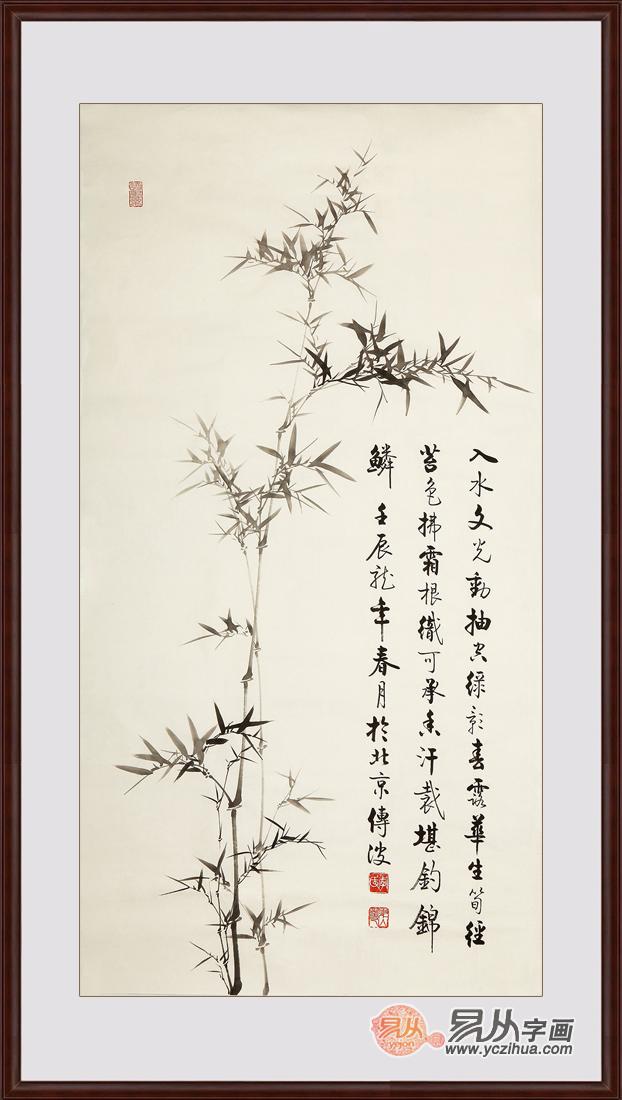 入水文光動抽空綠影春露華生筍徑
苔色拂霜根織可承香汗裁堪釣錦
鱗 壬辰龍年春月於北京傳波
易从字画
yczihua.com
www.yczihua.com